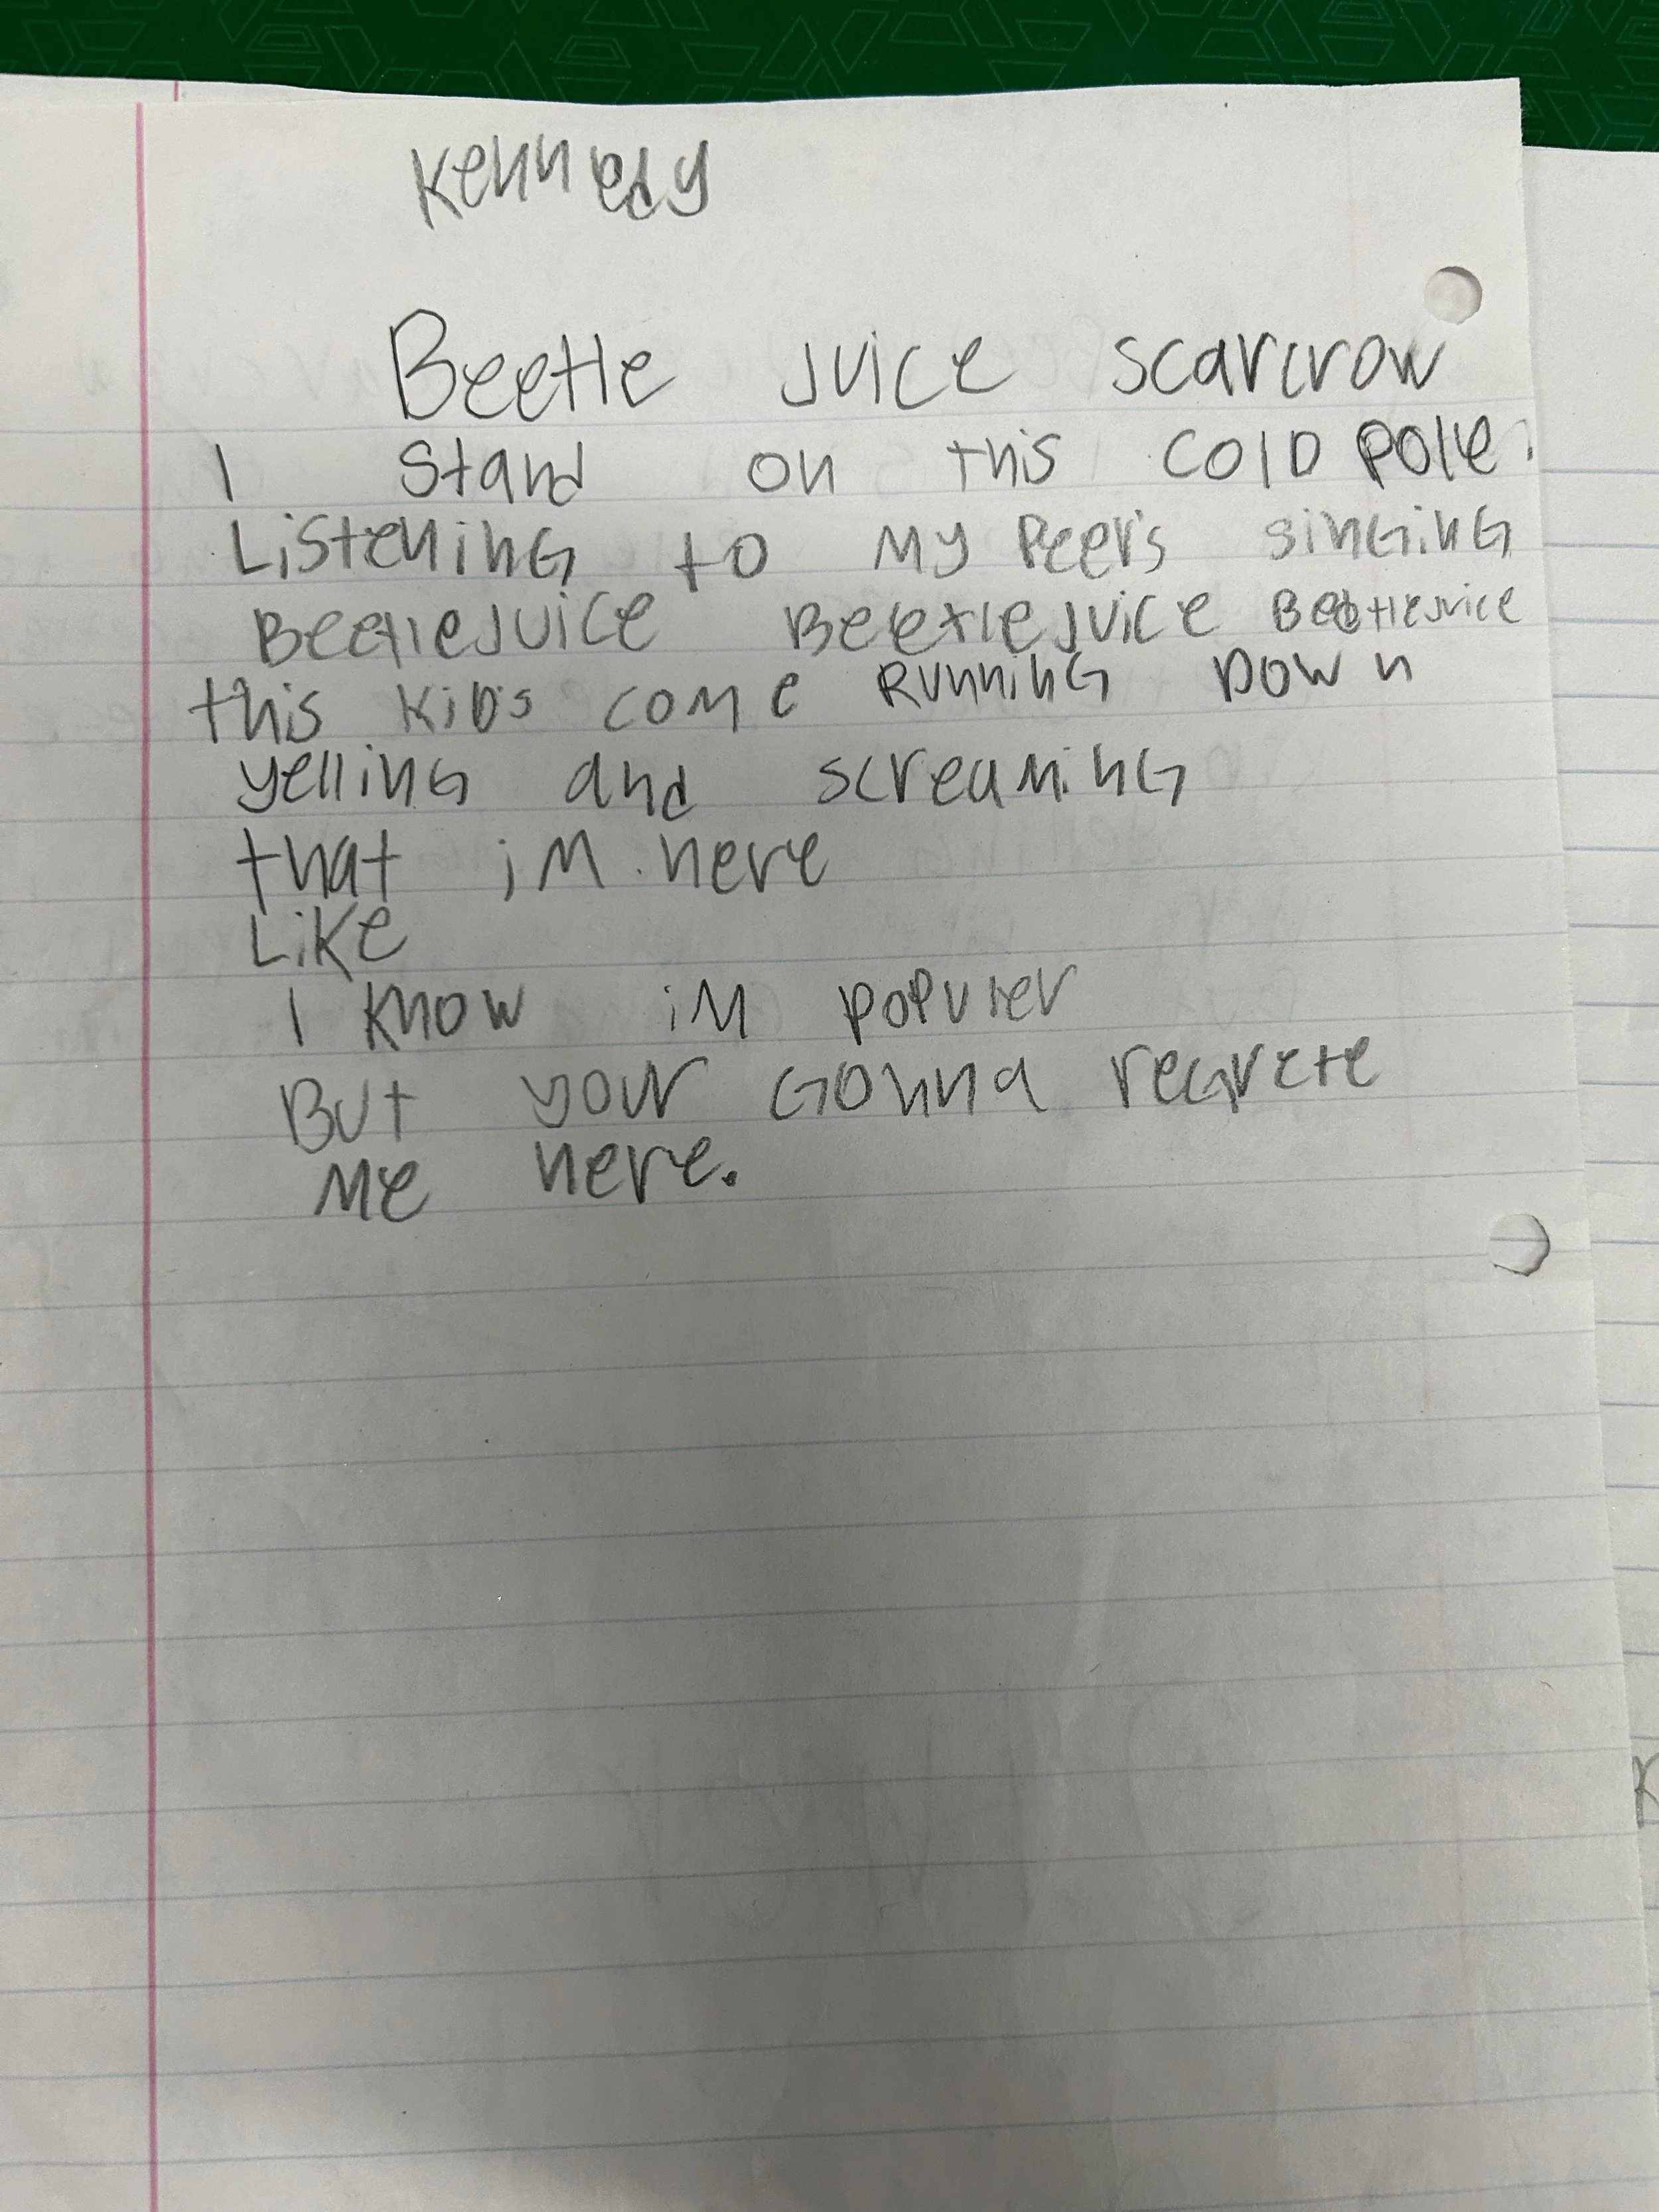 Kennedy
Beetle juice scarcrow
I stand on this cold pole.
Listening to my Peer's singing
Beetlejuice Beetlejuice Beetlejuice
this kid's come Running Down
yelling and screaming
that im here
Like
I know im populer
But your Gonna regrete
me here.